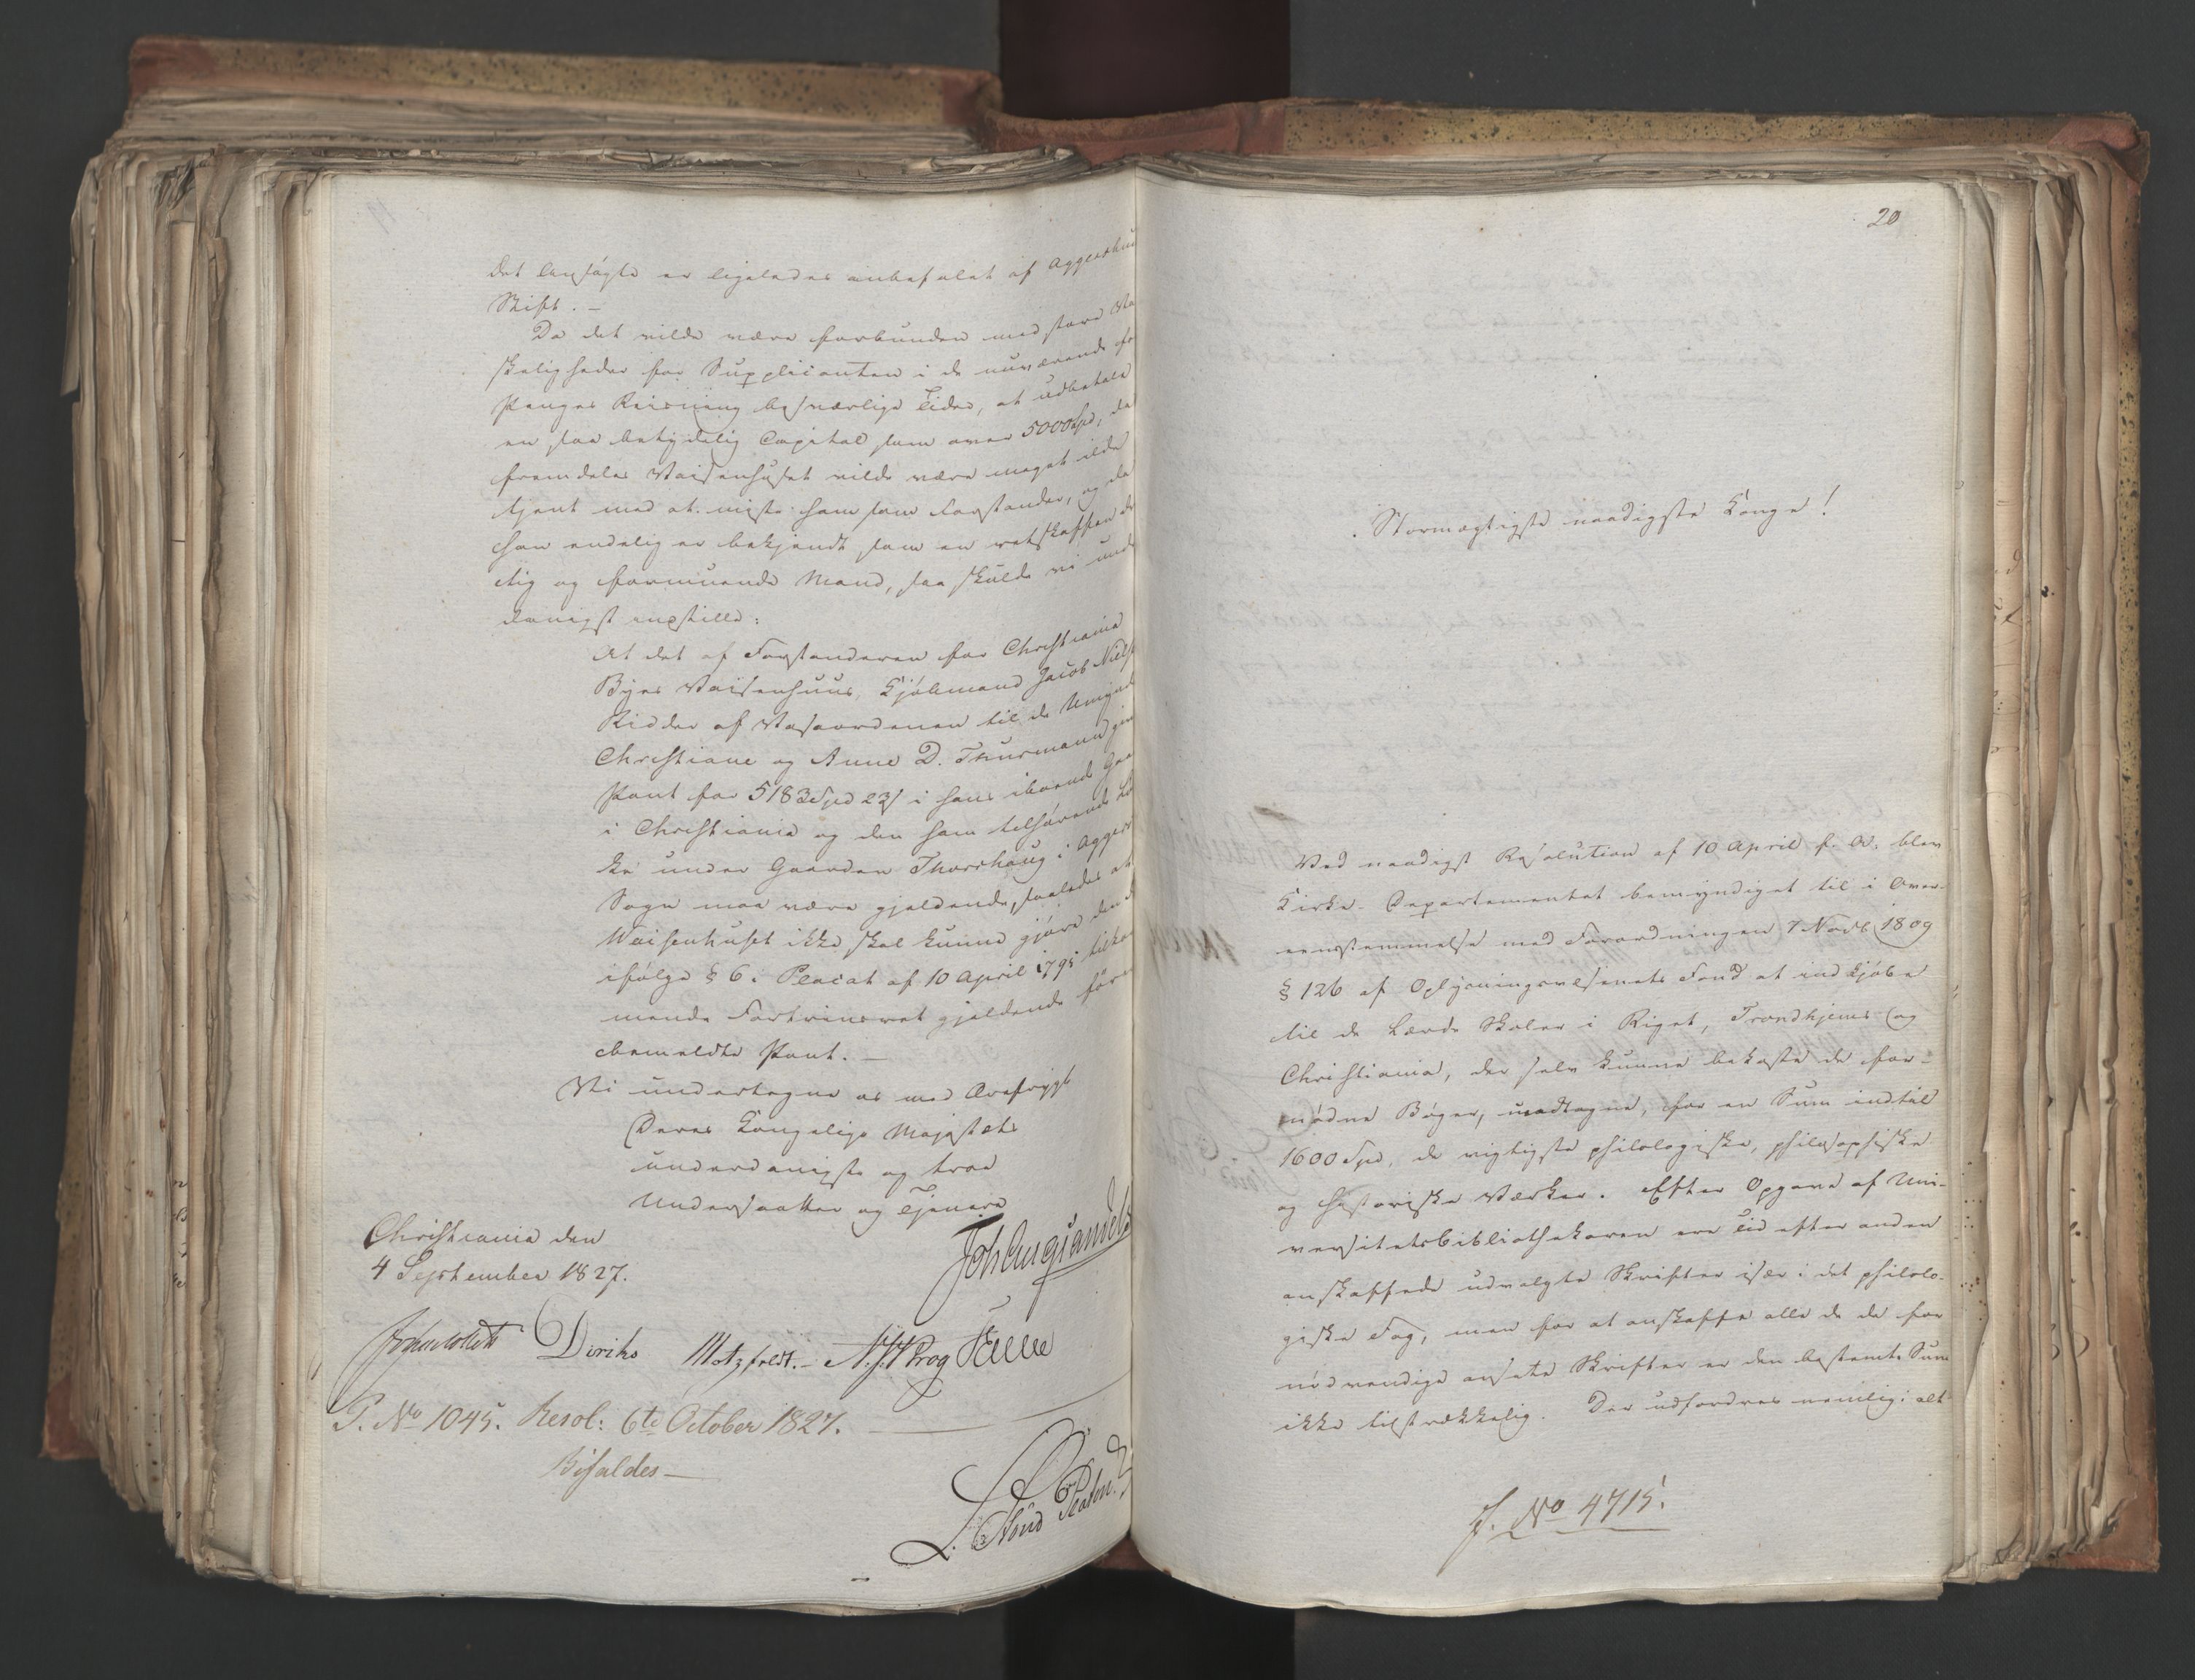 Det Ansøgte er ligeledes anbefalet af Aggershuus
Stift. -
Da det vilde være forbunden med store Van
skeligheder for Supplicanten i de nuværende for
Penges Reisning besværlige Tider, at udbetale
en saa betydelig Capital som over 5000 Spd, da
fremdeles Vaisenhuset vilde være meget ilde
tjent med at miste ham som Forstander, og da
han endelig er bekjendt som en retskaffen dyg
tig og formuende Mand, saa skulde vi under
danigst indstille:
At det af Forstanderen for Christiania
Byes Vaisenhuus, Kjøbmand Jacob Nielsen
Ridder af Vasaordenen til de Umyndige
Christiane og Anne D. Thurmann givne
Pant for 5183 Spd 23 s i hans iboende Gaard
i Christiania og den ham tilhørende Løk
ke under Gaarden Thorshaug i Aggers
Sogn maa være gjeldende, saaledes at
Waisenhuset ikke skal kunne gjøre den det
ifølge § 6 i Placat af 10 April 1795 tilkom
mende Fortrinsret gjeldende før
bemeldte Pant. -
Vi undertegne os med Ærefrygt
Deres Kongelige Majestæts
underdanigste og troe
Undersaatter og Tjenere
Christiania den
4 September 1827.
Joh Aug Sandels
Diriks Motzfeldt. - N.J.M Krog
P. No 1045. Resol: 6te October 1827.
Bifaldes -
20
Stormægtigste naadigste Konge!
Ved naadigst Resolution af 10 April f. A. blev
Kirke-Departementet bemyndiget til i Over-
eensstemmelse med Forordningen 7 Novb 1809
§ 126 af Oplysningsvæsenets Fond at indkjøbe
til de lærde Skoler i Riget, Trondhjems og
Christiania, der selv kunne bekoste de for-
nødne Bøger, undtagne, for en Sum indtil
1600 Spd, de vigtigste philologiske, philosophiske
og historiske Værker. Efter Opgave af Uni-
versitetsbibliothekaren ere Tid efter anden
anskaffede udvalgte Skrifter især i det philolo-
giske Fag, men for at anskaffe alle de de for
nødvendige ansete Skrifter er den bestemte Sum
ikke tilstrækkelig. Der udfordres nemlig i alt
J. No 4715.